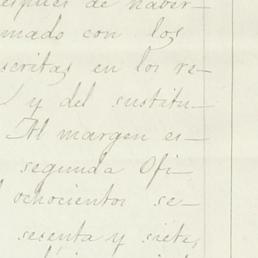 después de haber-
mado con los
scritas en los re-
y del sustitu-
Al margen es-
segunda Ofi-
ochocientos se-
sesenta y siete,